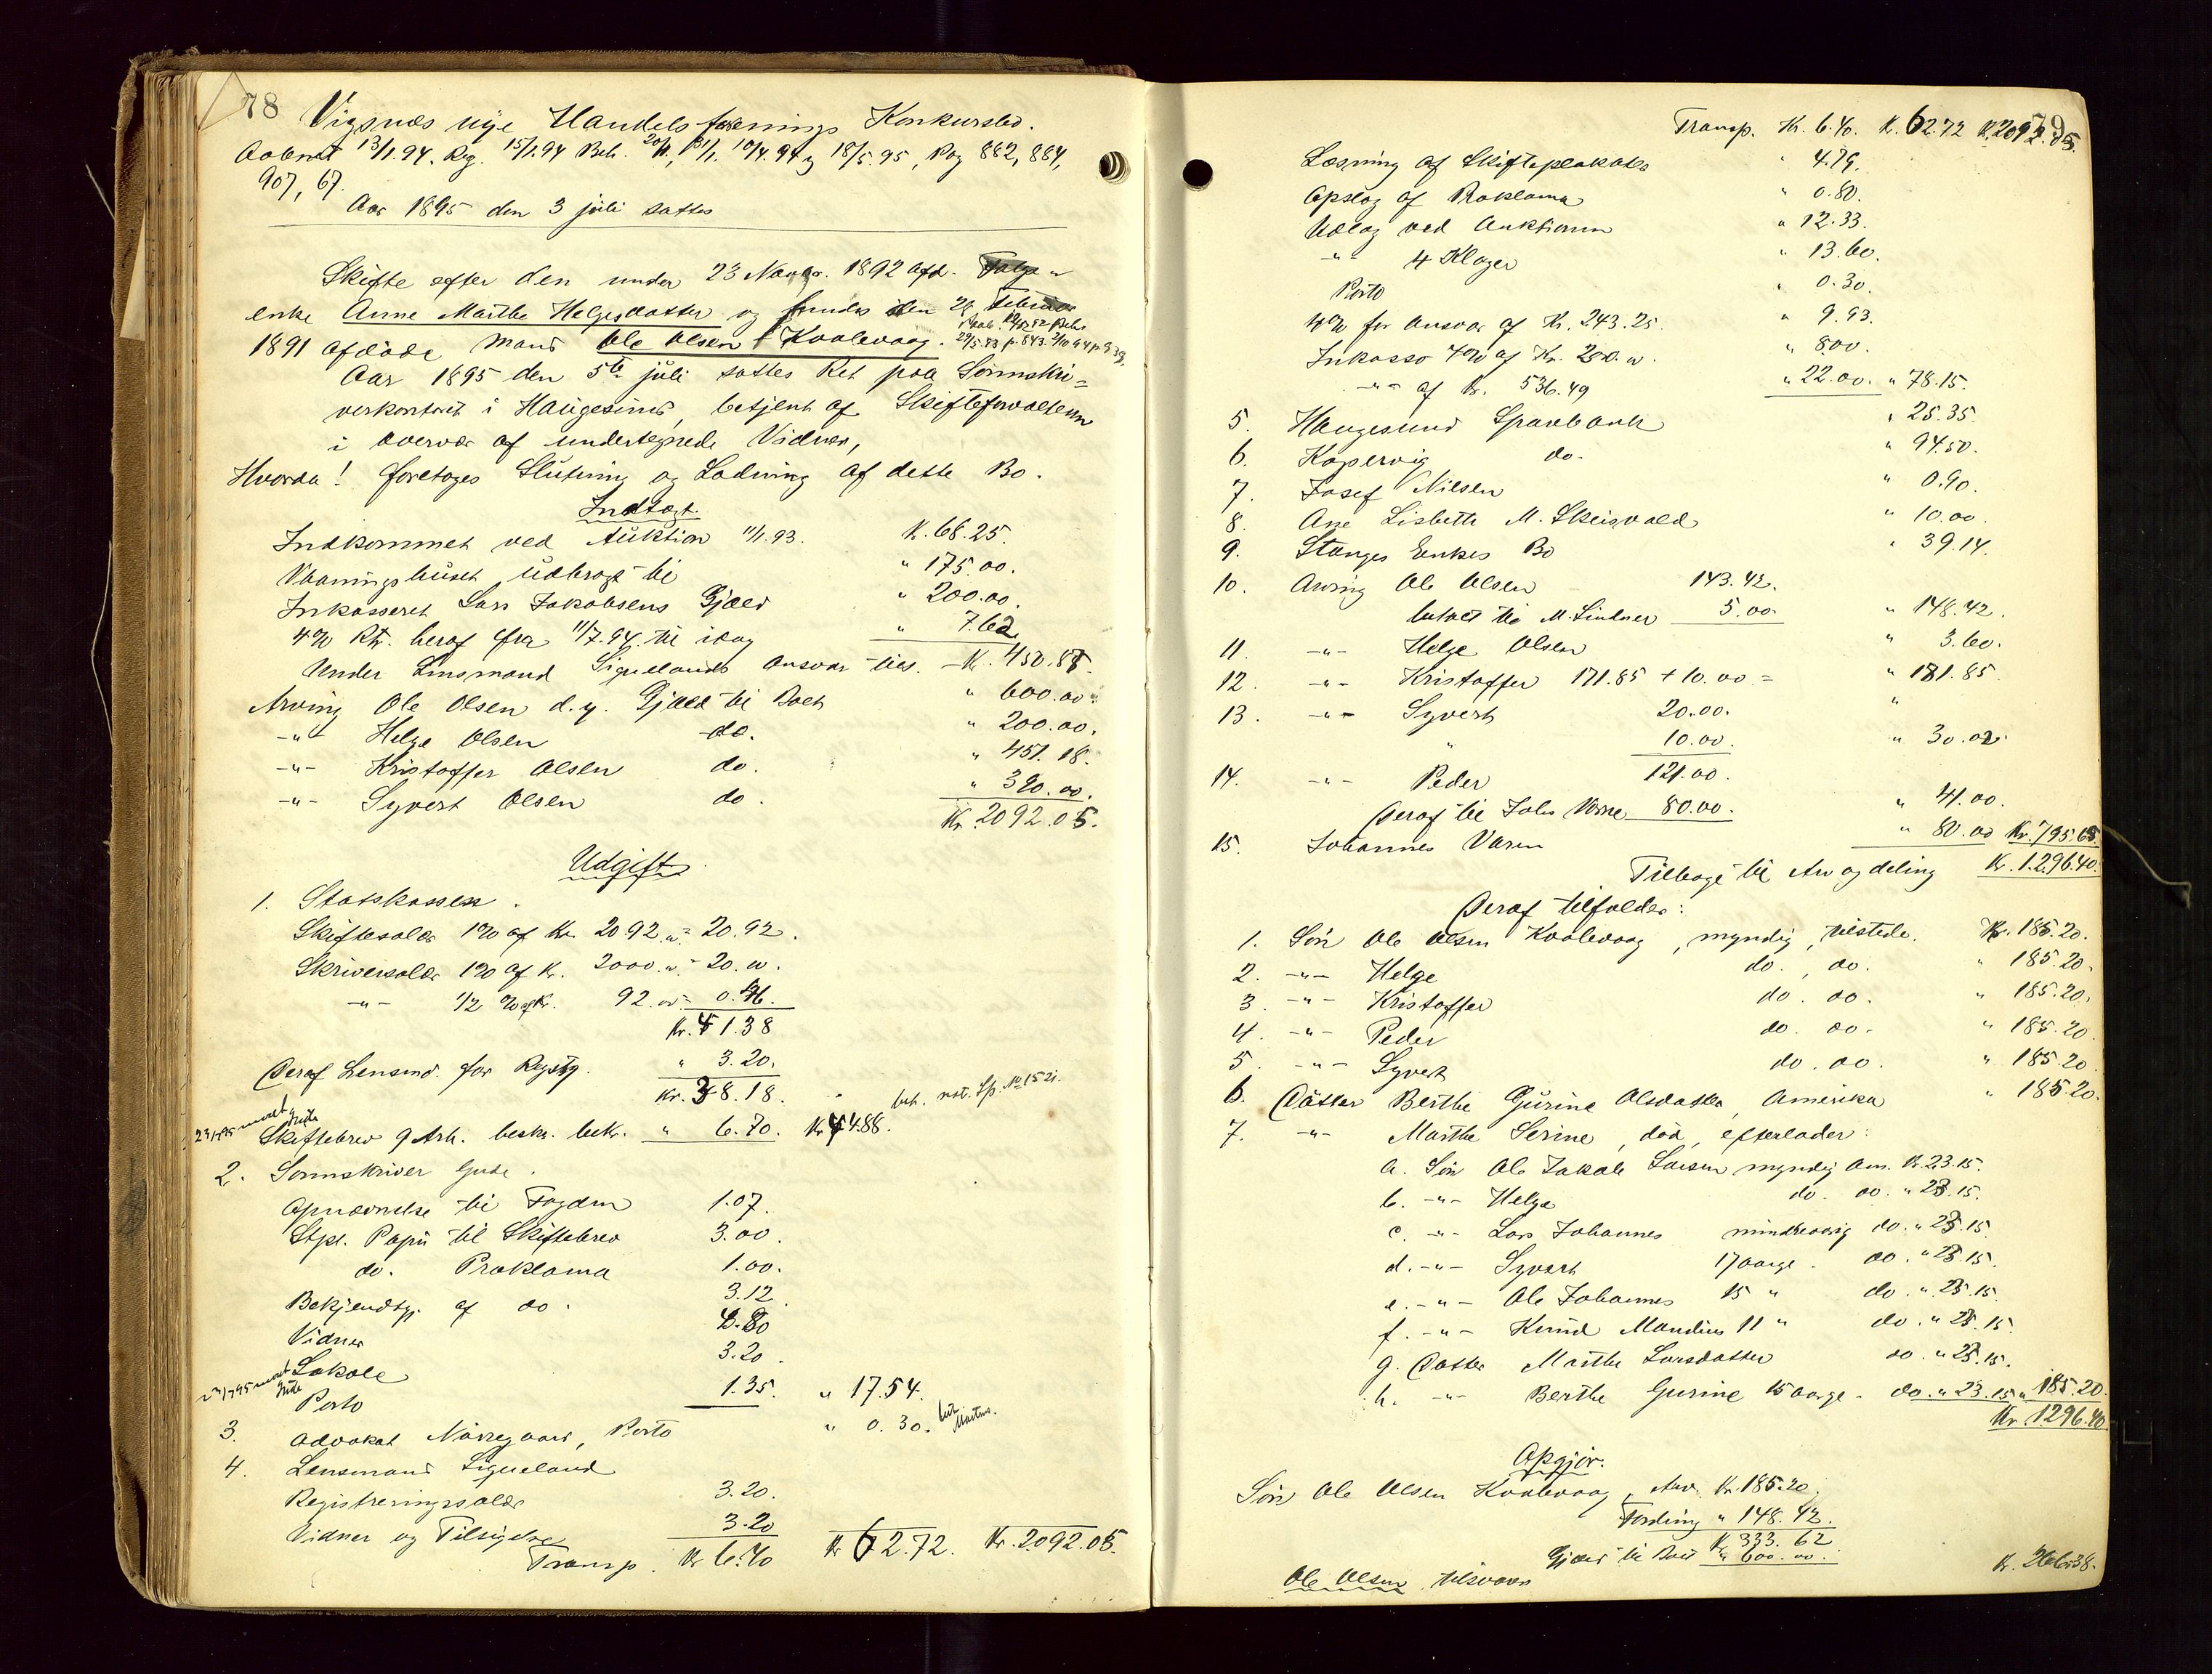 78
Vigsnæs nye Handelsforenings Konkursbo.
Aabnet 13/1.94. Reg. 15/1.94 Beh. 20/1, 31/1, 10/4.94 og 18/5.95, Pag 882, 884,
907, 67.
Aar 1895 den 3 juli sattes
Skifte efter den under 23 Novbr. 1892 afd.
enke Anne Marthe Helgesdatter og hendes den 26 Februar
1891 afdøde Mand Ole Olsen Kvalevaag.
Aar 1895 den 5te juli sattes Ret paa Sorenskri=
verkontoret i Haugesund, betjent af Skifteforvalteren
i overvær af undertegnede Vidner,
Hvorda! foretoges Slutning og Lodning af dette Bo.
Indtægt.
Indkommet ved Auktion 11/1.93. K. 68.25.
Vaaningshuset udbragt til " 175.00.
Inkasseret Lars Jakobsens Gjæld " 200.00.
4% Rtr. heraf fra 11/7.94 til idag " 7.62
Under Lensmand Siquelands Ansvar tils. K. 450.87.
Arving Ole Olsen d.y. Gjæld til Boet " 600.00.
-"- Helge Olsen do. " 200.00.
-"- Kristoffer Olsen do. " 451.18.
-"- Syvert Olsen do. " 390.00.
Kr. 2092.05.
Udgift
1. Statskassen.
Skiftesalær 1% af Kr. 2092.00 = 20.92.
Skriversalær 1% af Kr. 2000.00 = 20.00.
-"- 1/2 % af Kr. 92.00 = 0.46.
Kr. 41.38
Deraf Lensmd. for Regstg. " 3.20.
Kr. 38.18.
Skiftebrev 9 Ark. beskr. bekr. " 6.70. Kr 44.88.
2. Sorenskriver Gude.
Opnævnelse til Fogden 1.07.
Stpl. Papir til Skiftebrev 3.00.
do. Proklama 1.00.
Bekjendtg. af do. 3.12.
Vidner 4.80
Lokale 3.20.
Porto 1.35. " 17.54.
3. Advokat Nørregaard, Porto " 0.30.
4. Lensmand Siqueland
Registreringssalær 3.20.
Vidner og Tilsigelse 3.20
Transp. Kr 6.40 Kr 62.72. Kr. 2092.05.
79
Transp. Kr. 6.40. K. 62.72 K. 2092.05.
Læsning af Skifteplakater " 4.79.
Opslag af Proklama " 0.80.
Udlæg ved Auktionen " 12.33.
-"- 4 Klager " 13.60.
Porto " 0.30.
4% for Ansvar af Kr. 243.25. " 9.93.
Inkasso 4% af Kr. 200.00. " 8.00.
-"- af Kr. 536.49 " 22.00. " 78.15.
5. Haugesund Sparebank " 25.35.
6. Kopervig do. " 94.50.
7. Josef Nilsen " 0.90.
8. Ane Lisbeth M. Skeisvold " 10.00.
9. Stanges Enkes Bo " 39.14.
10. Arving Ole Olsen 143.42.
betalt til M. Lindner 5.00. " 148.42.
11. -"- Helge Olsen " 3.60.
12. -"- Kristoffer 171.85 + 10.00 = " 181.85.
13. -"- Syvert 20.00. "
" 10.00. " 30.00.
14. -"- Peder 121.00.
Deraf til Johs Varne 80.00. " 41.00.
15. Johannes Varen " 80.00 Kr. 795.65
Tilbage til Arv og deling K. 1.296.40.
Deraf tilfalder:
1. Søn Ole Olsen Kvalevaag, myndig, tilstede. Kr. 185.20.
2. -"- Helge do., do. " 185.20.
3. -"- Kristoffer do. do. " 185.20.
4. -"- Peder do. do. " 185.20.
5. -"- Syvert do. do. " 185.20.
6. Datter Berthe Gurine Olsdatter, Amerika " 185.20.
7. -"- Marthe Serine, død, efterlader:
a. Søn Ole Jakob Larsen myndig Am. K. 23.15.
b. -"- Helge do. do. " 23.15.
c. -"- Lars Johannes mindreaarig do. " 23.15.
d. -"- Syvert 17aarge. do. " 23.15.
e. -"- Ole Johannes 15 " do. " 23.15.
f. -"- Knud Mandius 11 " do. " 23.15.
g. Datter Marthe Larsdatter do. " 23.15.
h. -"- Berthe Gurine 15 aarge. do. " 23.15 " 185.20.
Kr. 1296.40
Opgjør.
Søn Ole Olsen Kvalevaag, Arv Kr. 185.20.
Fordring " 148.42.
K. 333.62
Gjæld til Boet " 600.00.
Ole Olsen tilsvarer K. 266.38.